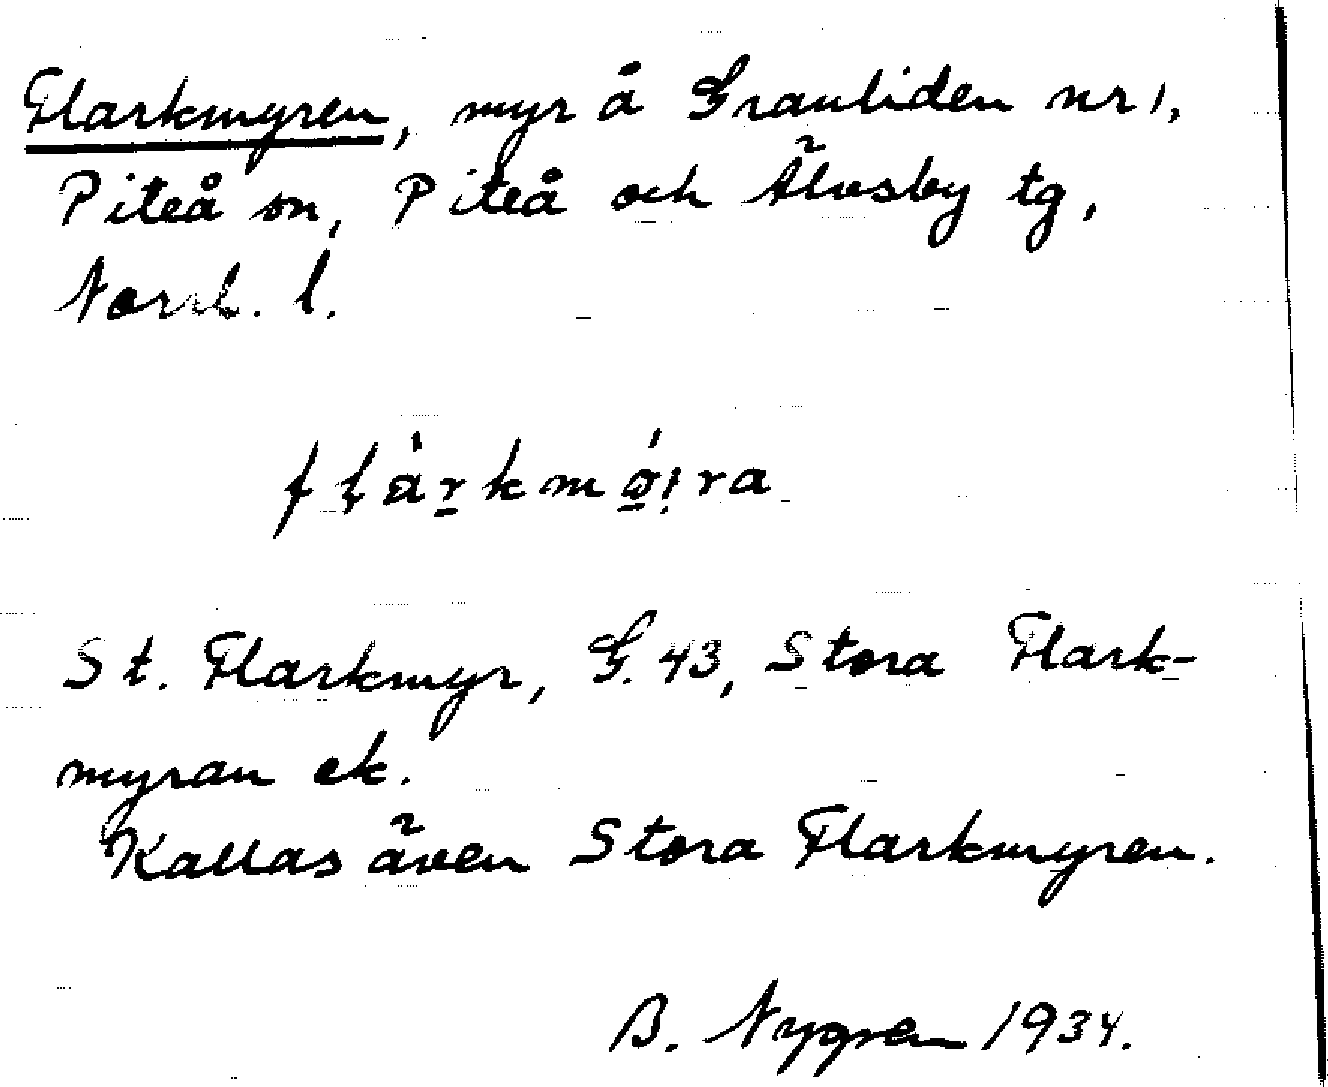 Flarkmyren, myr å Granliden nr 1,
Piteå sn, Piteå och Älvsby tg,
Norrb. l.
flàrkmǿ̱ira
St. Flarkmyr, G. 43, Stora Flark-
myran ek.
Kallas även Stora Flarkmyren.
B. Nygren 1934.